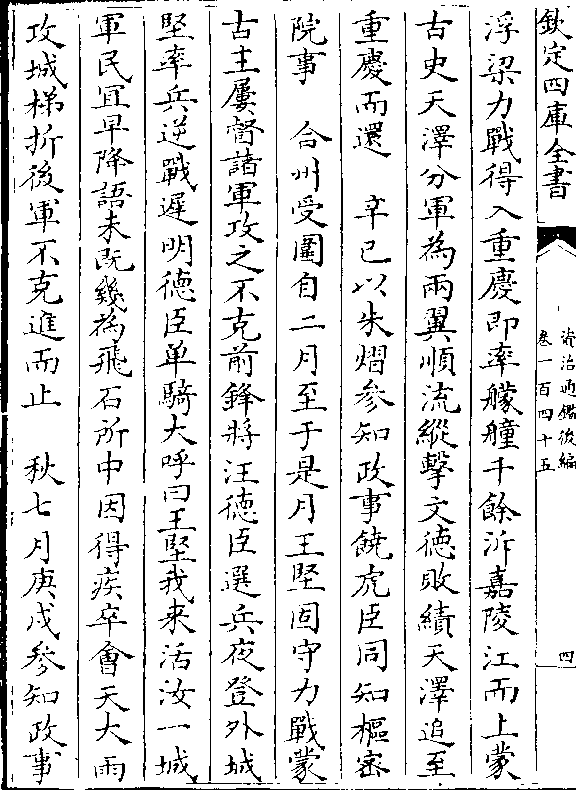 欽定四庫全書
資治通鑑後編
卷一百四十五
四
浮梁力戰得入重慶即率艨艟千餘泝嘉陵江而上蒙
古史天澤分軍為兩翼順流縱擊文徳敗績天澤追至
重慶而還　辛巳以朱熠參知政事饒虎臣同知樞宻
院事　合州受圍自二月至于是月王堅固守力戰蒙
古主屢督諸軍攻之不克前鋒將汪徳臣選兵夜登外城
堅率兵逆戰遲明徳臣单騎大呼曰王堅我来活汝一城
軍民宜早降語未既幾為飛石所中因得疾卒會天大雨
攻城梯折後軍不克進而止　秋七月庚戌參知政事